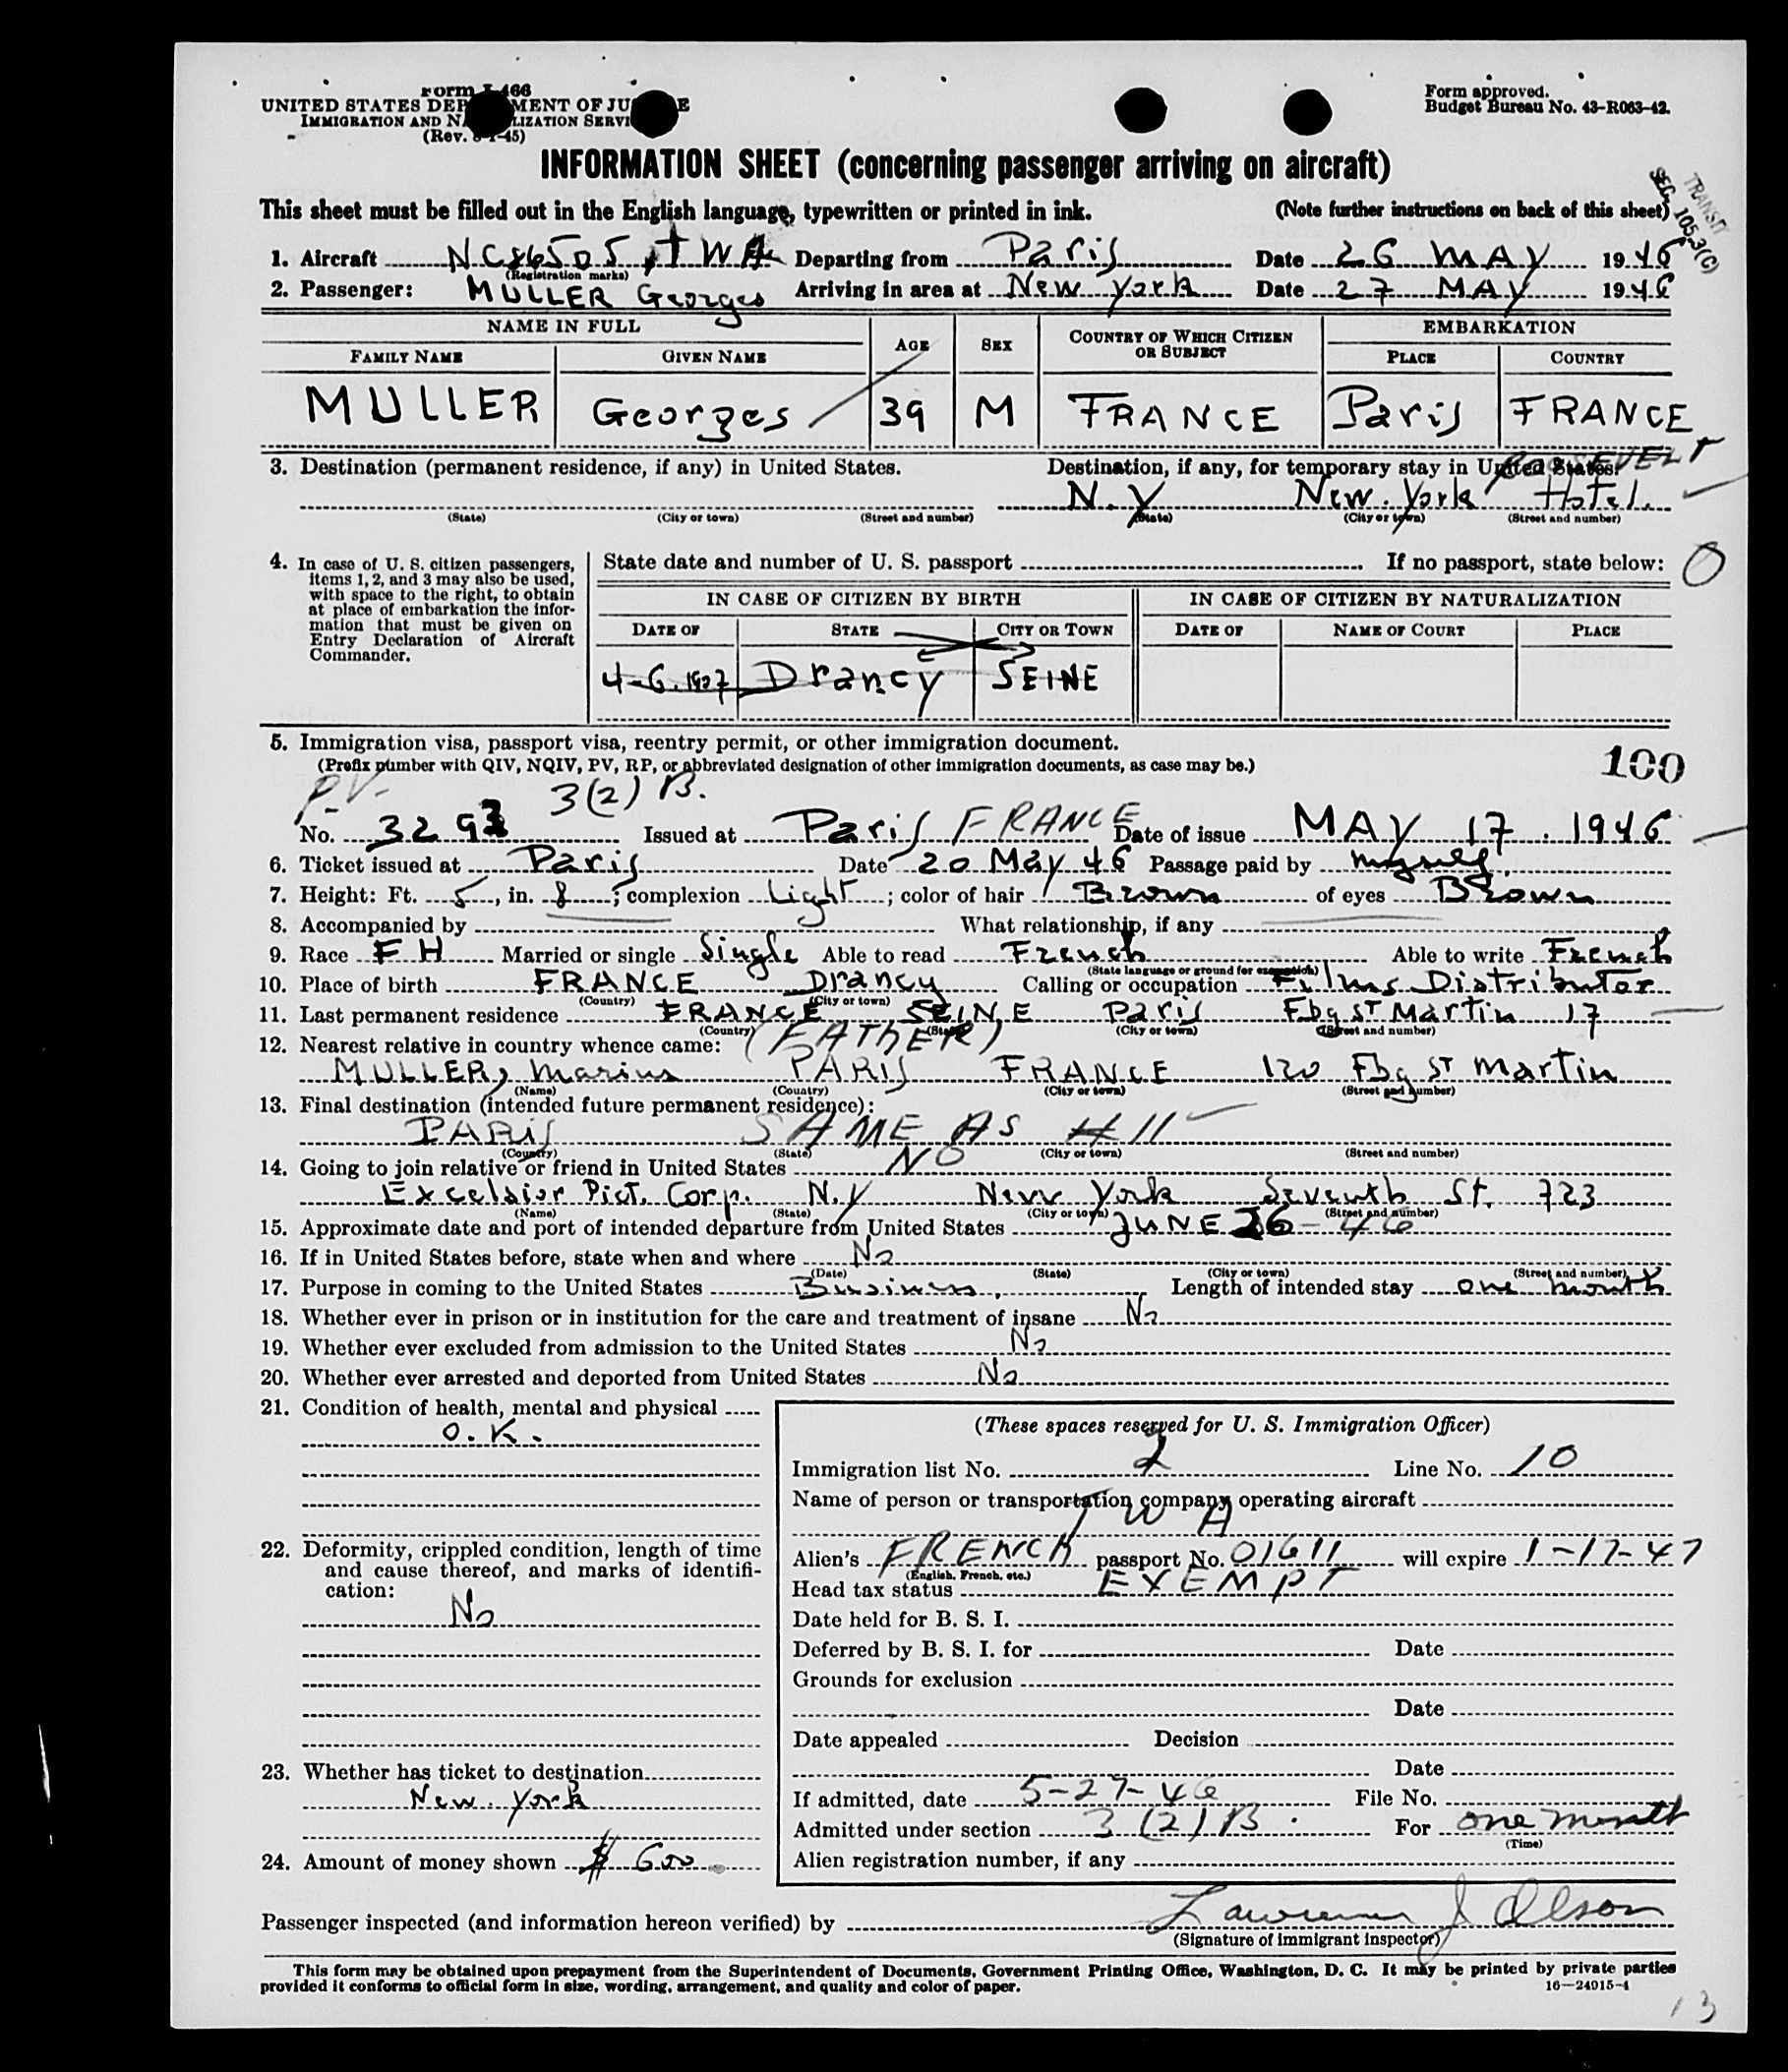 Form I-466
UNITED STATES DEP MENT OF JU E
IMMIGRATION AND NA LIZATION SERVI
(Rev. 8-1-45)
Form approved.
Budget Bureau No. 43-R063-42.
INFORMATION SHEET (concerning passenger arriving on aircraft)
TRANSIT
SEC. 105.3(C)
This sheet must be filled out in the English language, typewritten or printed in ink. (Note further instructions on back of this sheet)
1. Aircraft NC86505, TWA Departing from Paris Date 26 MAY 1946
(Registration marks)
2. Passenger: MULLER Georges Arriving in area at New York Date 27 MAY 1946
NAME IN FULL AGE SEX COUNTRY OF WHICH CITIZEN OR SUBJECT EMBARKATION
FAMILY NAME GIVEN NAME PLACE COUNTRY
MULLER Georges 39 M FRANCE Paris FRANCE
3. Destination (permanent residence, if any) in United States. Destination, if any, for temporary stay in United States.
ROOSEVELT
N.Y New. York Hotel.
(State) (City or town) (Street and number) (State) (City or town) (Street and number)
4. In case of U. S. citizen passengers,
items 1, 2, and 3 may also be used,
with space to the right, to obtain
at place of embarkation the infor-
mation that must be given on
Entry Declaration of Aircraft
Commander.
State date and number of U. S. passport If no passport, state below: 0
IN CASE OF CITIZEN BY BIRTH IN CASE OF CITIZEN BY NATURALIZATION
DATE OF STATE CITY OR TOWN DATE OF NAME OF COURT PLACE
4-6.1907 Drancy SEINE
5. Immigration visa, passport visa, reentry permit, or other immigration document.
(Prefix number with QIV, NQIV, PV, RP, or abbreviated designation of other immigration documents, as case may be.)
100
P.V. 3(2) B.
No. 3293 Issued at Paris FRANCE Date of issue MAY 17. 1946
6. Ticket issued at Paris Date 20 May 46 Passage paid by myself.
7. Height: Ft. 5, in. 8; complexion Light; color of hair Brown of eyes Brown
8. Accompanied by What relationship, if any
9. Race FH Married or single Single Able to read French Able to write French
(State language or ground for exemption)
10. Place of birth FRANCE Drancy Calling or occupation Films Distributor
(Country) (City or town)
11. Last permanent residence FRANCE SEINE Paris Fbg ST Martin 17
(Country) (State) (City or town) (Street and number)
12. Nearest relative in country whence came: (FATHER)
MULLER, Marius PARIS FRANCE 120 Fbg ST Martin
(Name) (Country) (City or town) (Street and number)
13. Final destination (intended future permanent residence):
PARIS SAME AS #11
(Country) (State) (City or town) (Street and number)
14. Going to join relative or friend in United States NO
Excelsior Pict. Corp. N.Y New York Seventh St. 723
(Name) (State) (City or town) (Street and number)
15. Approximate date and port of intended departure from United States JUNE 26-46
16. If in United States before, state when and where No
(Date) (State) (City or town) (Street and number)
17. Purpose in coming to the United States Business, Length of intended stay one month
18. Whether ever in prison or in institution for the care and treatment of insane No
19. Whether ever excluded from admission to the United States No
20. Whether ever arrested and deported from United States No
21. Condition of health, mental and physical
O.K.
22. Deformity, crippled condition, length of time
and cause thereof, and marks of identifi-
cation:
No
23. Whether has ticket to destination
New. York
24. Amount of money shown $ 600
(These spaces reserved for U. S. Immigration Officer)
Immigration list No. 2 Line No. 10
Name of person or transportation company operating aircraft
TWA
Alien's FRENCH passport No. 01611 will expire 1-17-47
(English, French, etc.)
Head tax status EXEMPT
Date held for B. S. I.
Deferred by B. S. I. for Date
Grounds for exclusion
Date
Date appealed Decision
Date
If admitted, date 5-27-46 File No.
Admitted under section 3(2)B. For one month
(Time)
Alien registration number, if any
Passenger inspected (and information hereon verified) by Lawrence J Olson
(Signature of immigrant inspector)
This form may be obtained upon prepayment from the Superintendent of Documents, Government Printing Office, Washington, D. C. It may be printed by private parties
provided it conforms to official form in size, wording, arrangement, and quality and color of paper.
16—24915-1
13